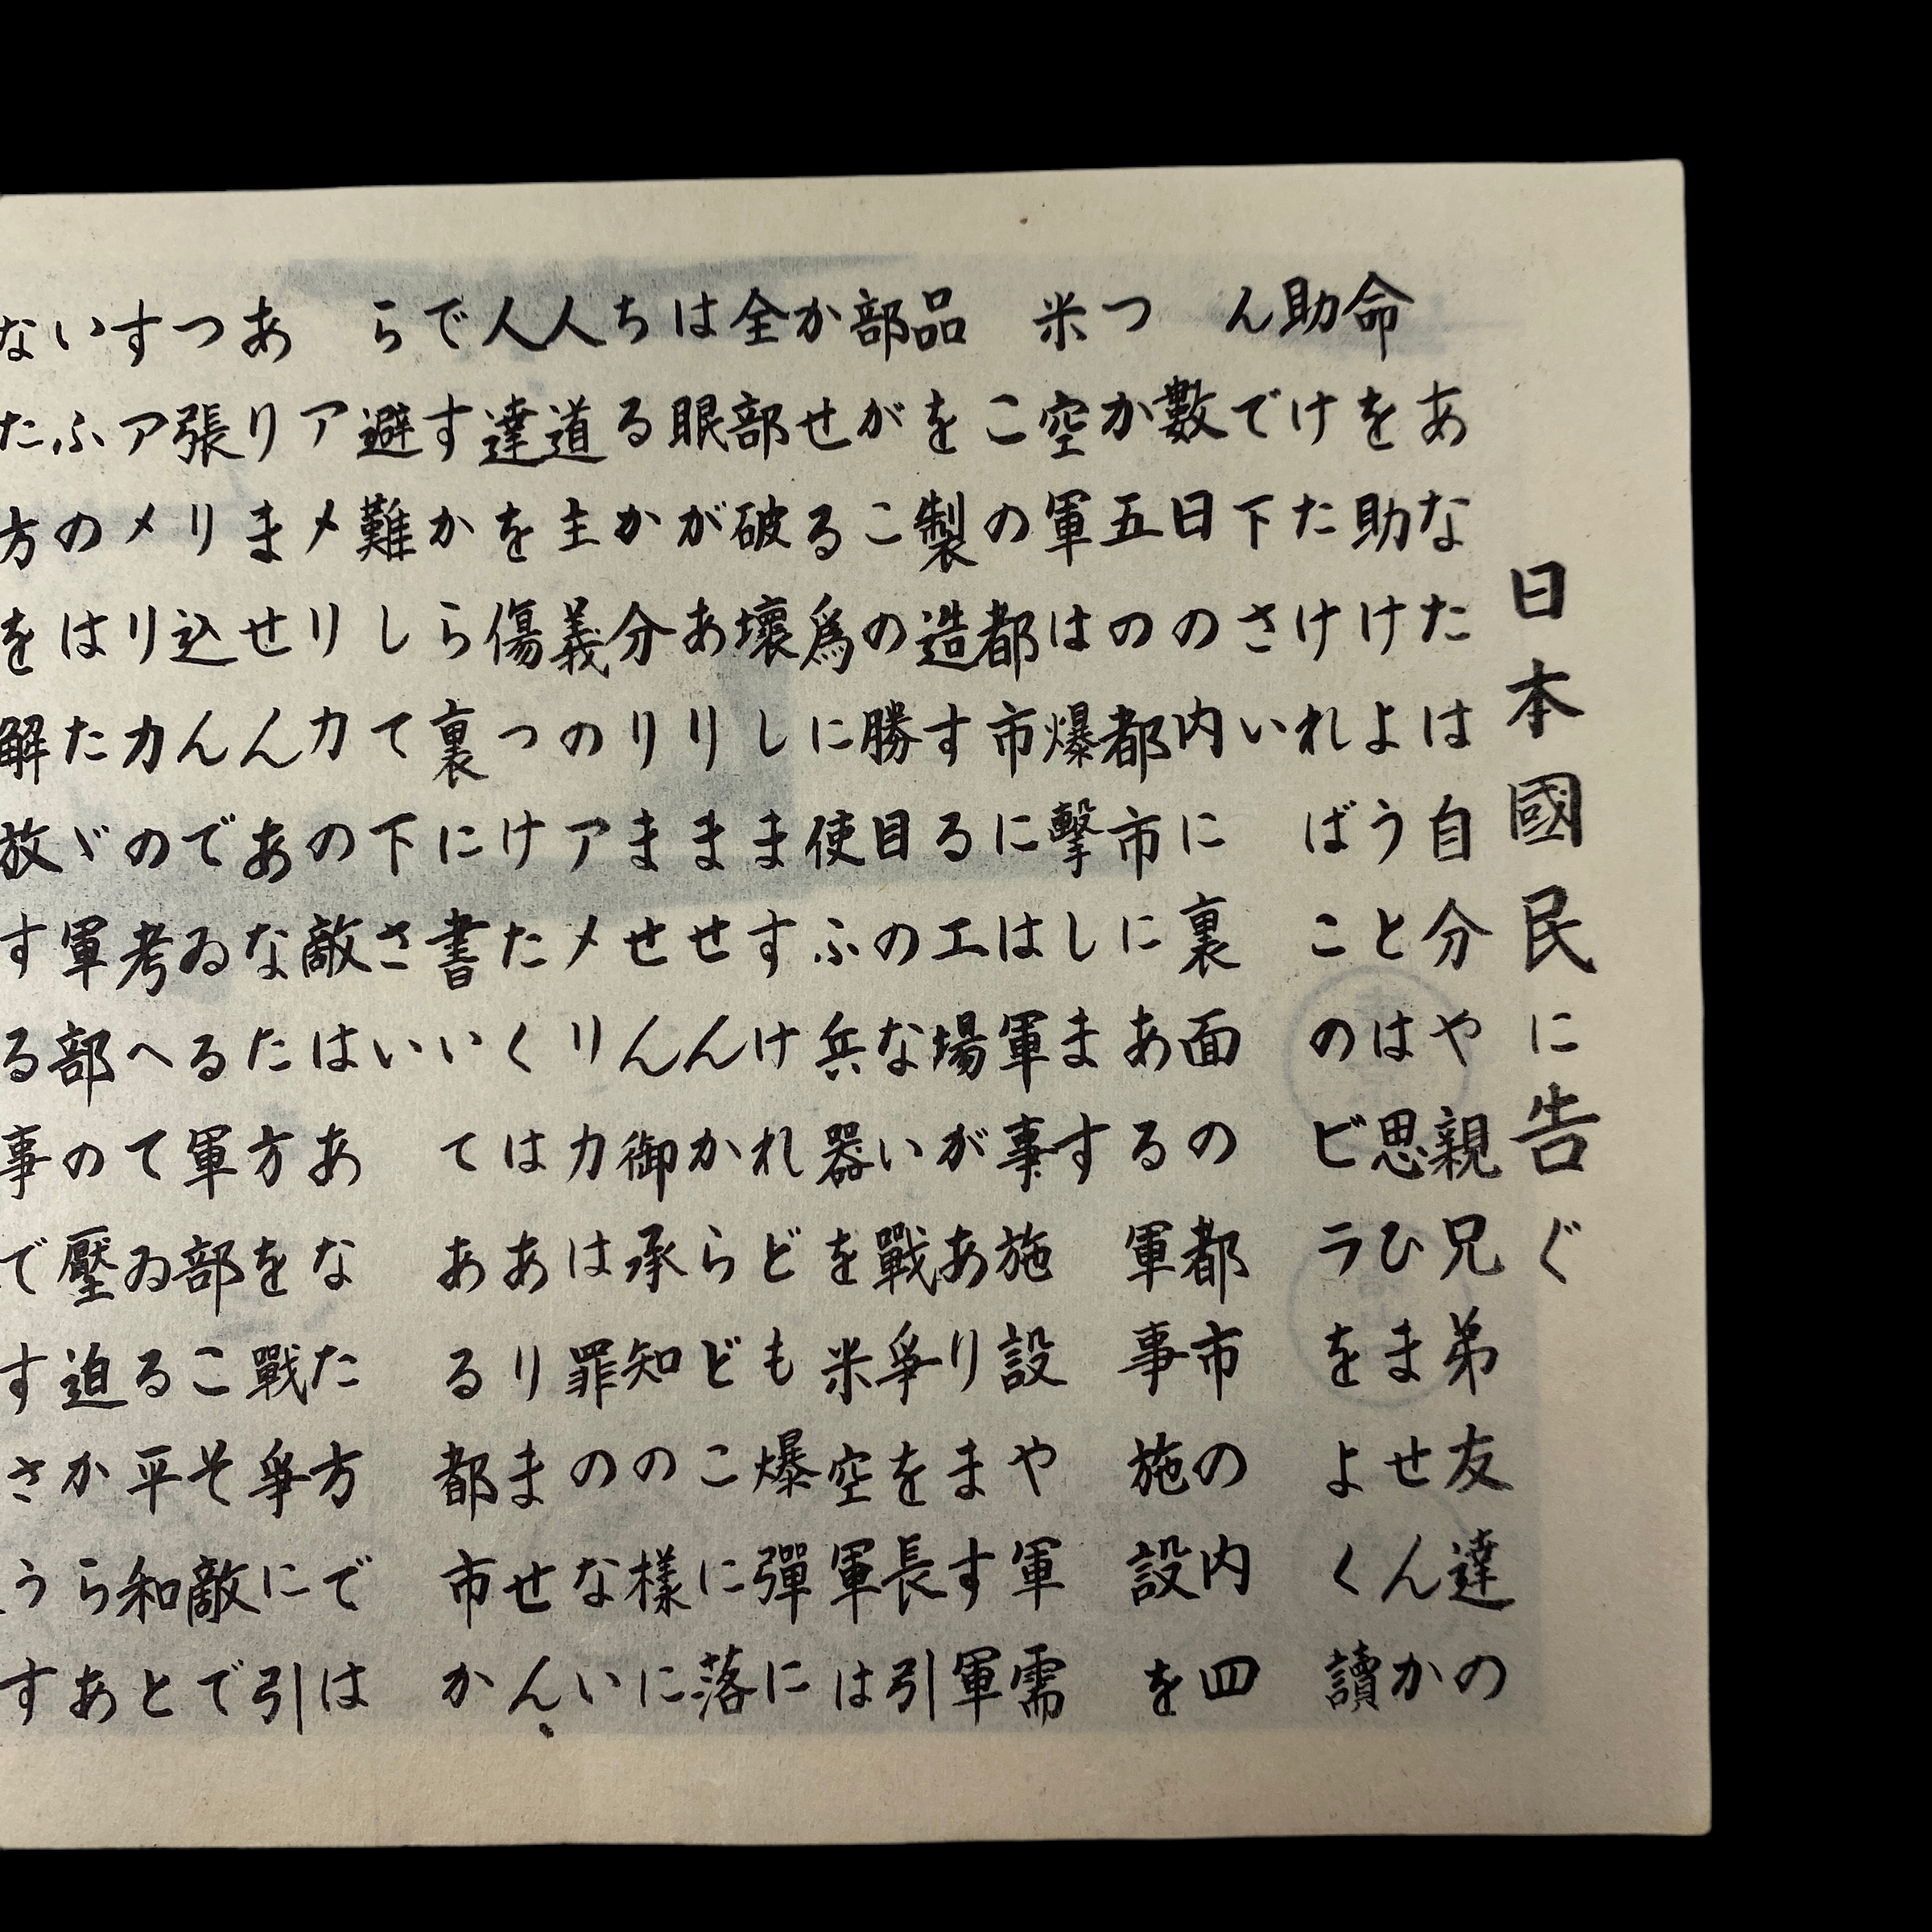 日本國民に告ぐ
あなたは自分や親兄弟友達の
命を助けようとは思ひませんか
助けたければこのビラをよく讀
んで下さい
數日の内に裏面の都市の内四
つか五の都市にある軍事施設を
米空軍は爆擊します
この都市には軍事施設や軍需
品を製造する工場があります軍
部がこの勝目のない戰爭を長引
かせる爲に使ふ兵器を米空軍は
全部破壞しますけれども爆彈に
は眼がありませんからどこに落
ちるか分りません御承知の樣に
人道主義のアメリカは罪のない
人達を傷つけたくはありません、
ですから裏に書いてある都市か
ら避難して下さい
アメリカの敵はあなた方では
ありませんあなた方を戰爭に引
つ張り込んでゐる軍部こそ敵で
すアメリカの考へてゐる平和と
いふのはたゞ軍部の壓迫からあ
なた方を解放する事ですさうす